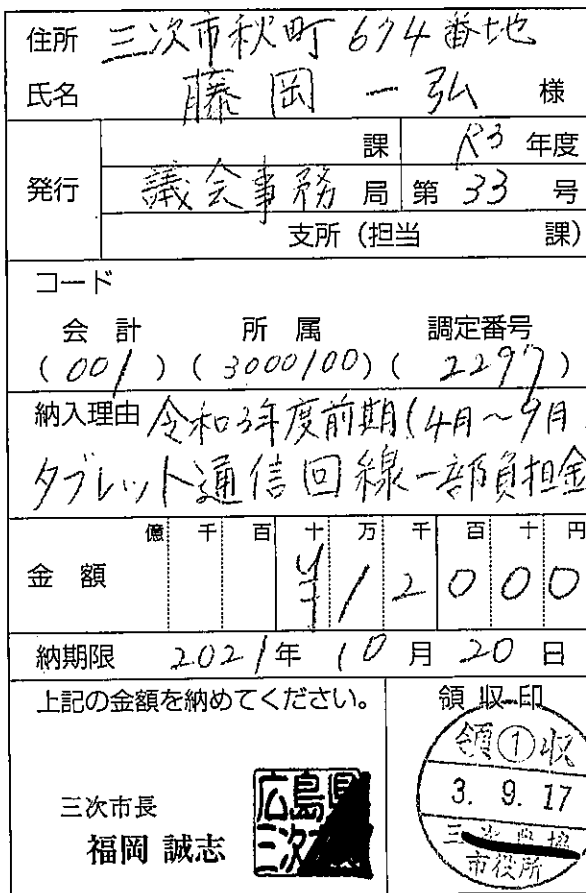 住所 三次市秋町674番地
氏名 藤岡一弘 様
課 R3 年度
発行 議会事務 局 第 33 号
支所(担当 課)
コード
会計 所属 調定番号
(001)(3000100)(2297)
納入理由 令和3年度前期(4月~9月
タブレット通信回線一部負担金
億 千 百 十 万 千 百 十 円
金額 ¥12000
納期限 2021年 10月 20日
上記の金額を納めてください。
領収印
領①収
3. 9. 17
市役所
三次市長
福岡 誠志
広島県
三次